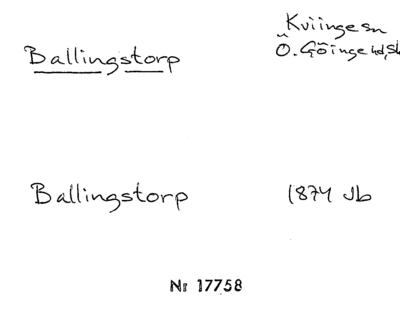 Ballingstorp Kviinge sn
Ö. Göinge hd, Sk
Ballingstorp 1874 Jb
Nr 17758